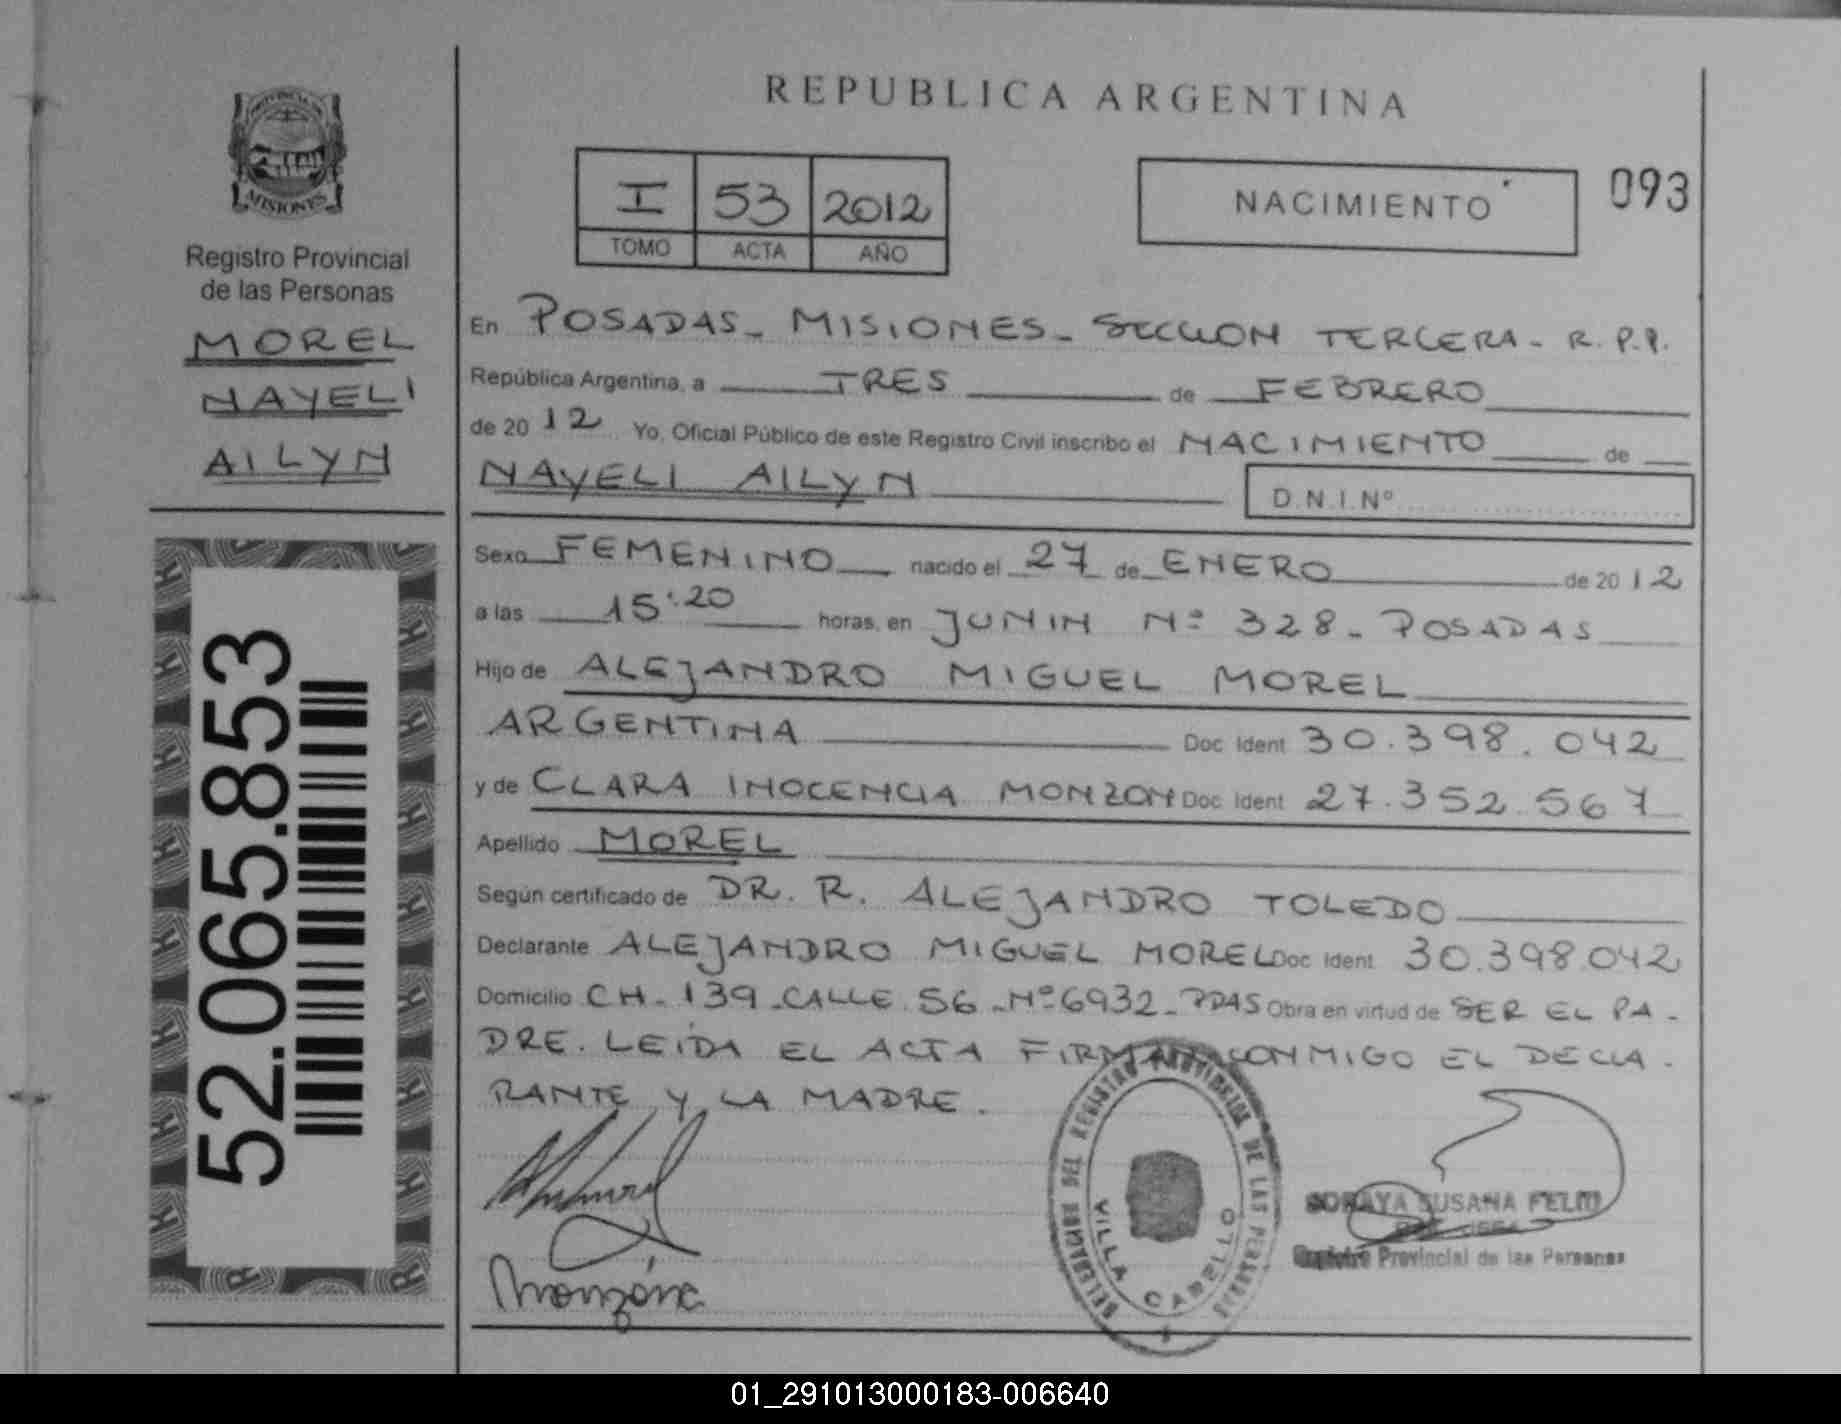 REPUBLICA ARGENTINA
PROVINCIA DE
MISIONES
Registro Provincial
de las Personas
MOREL
NAYELI
AILYN
52.065.853
I 53 2012
TOMO ACTA AÑO
NACIMIENTO
093
En POSADAS - MISIONES - SECCION TERCERA - R. P. P.
República Argentina, a TRES de FEBRERO
de 2012 Yo, Oficial Público de este Registro Civil inscribo el NACIMIENTO de
NAYELI AILYN D.N.I.Nº
Sexo FEMENINO nacido el 27 de ENERO de 2012
a las 15:20 horas, en JUNIN Nº 328 - POSADAS
Hijo de ALEJANDRO MIGUEL MOREL
ARGENTINA Doc Ident 30.398.042
y de CLARA INOCENCIA MONZON Doc Ident 27.352.567
Apellido MOREL
Según certificado de DR. R. ALEJANDRO TOLEDO
Declarante ALEJANDRO MIGUEL MOREL Doc Ident 30.398.042
Domicilio CH - 139 - CALLE 56 - Nº 6932 - PDAS Obra en virtud de SER EL PA-
DRE. LEIDA EL ACTA FIRMAN CONMIGO EL DECLA-
RANTE Y LA MADRE.
DELEGACION DEL REGISTRO PROVINCIAL DE LAS PERSONAS
VILLA CABELLO
SORAYA SUSANA
Registro Provincial de las Personas
Monzón
01_291013000183-006640